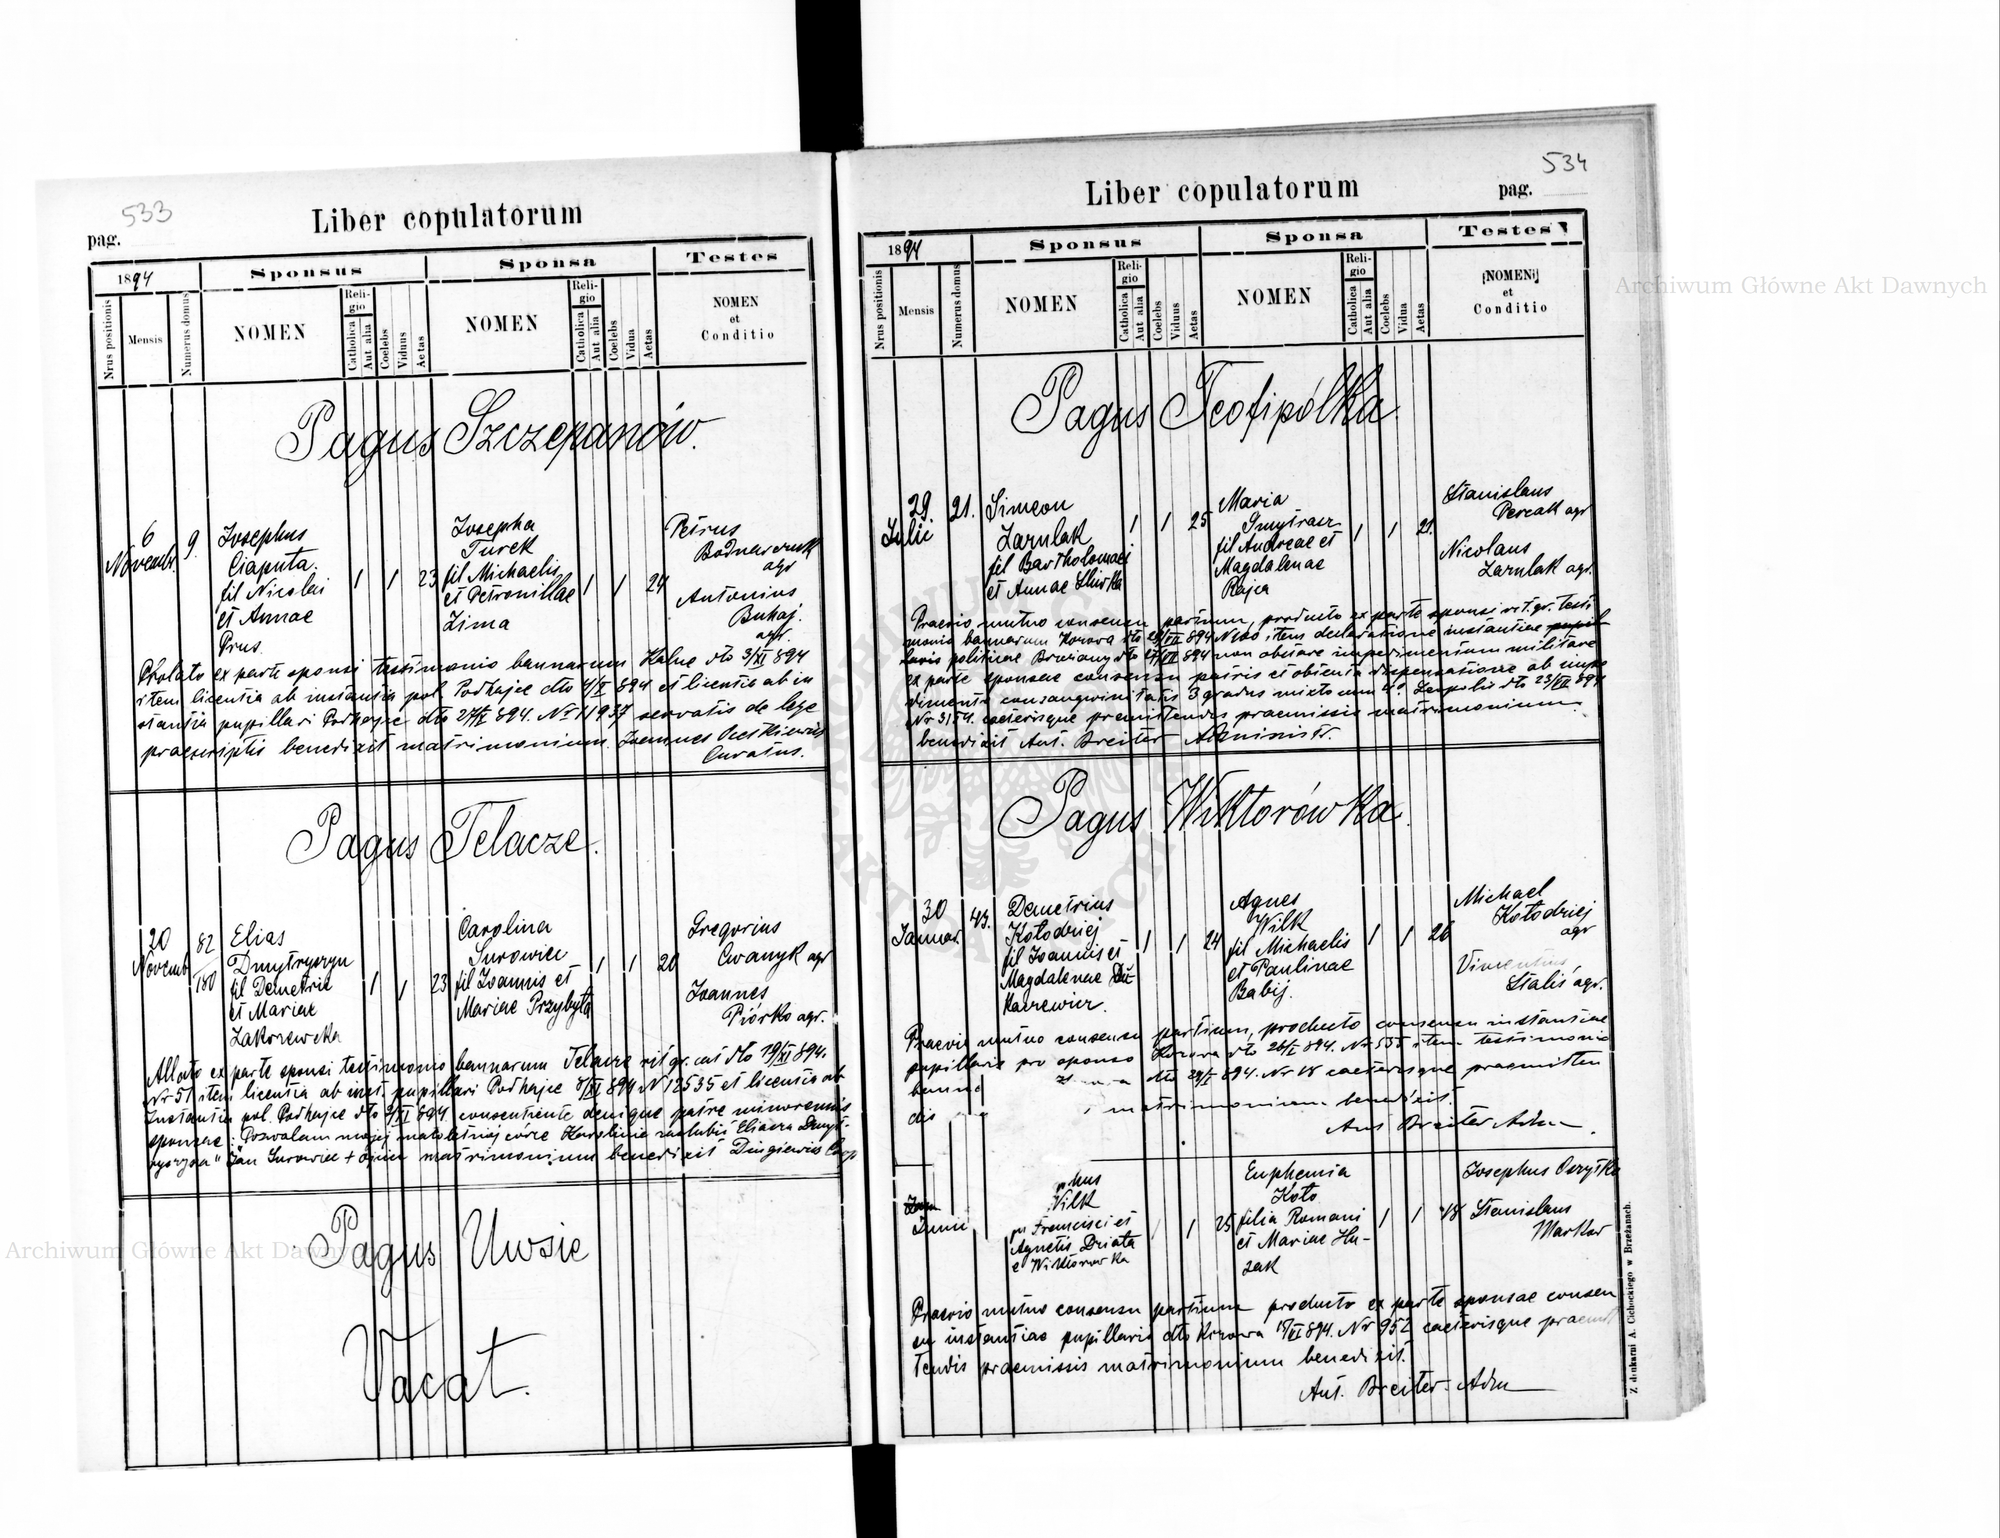 533
pag.
Liber copulatorum
1894
Sponsus
Sponsa
Testes
Nrus positionis
Mensis
Numerus domus
NOMEN
Religio
Catholica
Aut alia
Coelebs
Viduus
Aetas
NOMEN
Religio
Catholica
Aut alia
Coelebs
Vidua
Aetas
NOMEN
et
Conditio
Pagus Szczepanów.
6
Novembr.
9.
Josephus
Ciaputa.
fil Nicolai
et Annae
Prus.
1 1 23
Josepha
Turek
fil Michaelis
et Petronillae
Zima
1 1 24
Petrus
Bodnarczuk
agr
Antonius
Buhaj.
agr.
Prolato ex parte sponsi testimonio bannarum Kalne dto 3/XI 894
item licentia ab instantia pol. Podhajce dto 4/X 894 et licentia ab in
stantia pupillari Podhajce dto 27/X 894. No 11937 servatis de lege
praescriptis benedixit matrimonium Joannes
Curatus.
Pagus Telacze.
20
Novemb
82
180
Elias
Dmytryszyn
fil Demetrii
et Mariae
Zakrzewska
1 1 23
Carolina
Surowiec
fil Joannis et
Mariae Przybyła
1 1 20
Gregorius
Cwanyk agr
Joannes
Piórko agr.
Allato ex parte sponsi testimonio bannarum Telacze rit gr. cat dto 19/XI 894.
Nr 51 item licentia ab inst. pupillari Podhajce 8/XI 894 N 12535 et licentia ab
Instantia pol. Podhajce dto 9/XI 894 consentiente denique patre minorennis
sponsae: "Pozwalam mojej małoletniej córce Karolinie zaślubić Eliasza Dmyt-
ryszyna" Jan Surowiec + ojciec matrimonium benedixit Coop
Pagus Uwsie
Vacat.
534
Liber copulatorum
pag.
1894
Sponsus
Sponsa
Testes
Nrus positionis
Mensis
Numerus domus
NOMEN
Religio
Catholica
Aut alia
Coelebs
Viduus
Aetas
NOMEN
Religio
Catholica
Aut alia
Coelebs
Vidua
Aetas
NOMEN
et
Conditio
Pagus Teofipólka
29.
Julii
21.
Simeon
Zarulak
fil Bartholomaei
et Annae Sliwka
1 1 25
Maria
fil Andreae et
Magdalenae
Rajca
1 1 21.
Stanislaus
Percak agr
Nicolaus
Zarulak agr.
Praevio mutuo consensu partium, producto ex parte sponsi rit. gr. testi
monio bannarum Kozowa dto 894 item declaratione instantiae
politicae Brzeżany dto 27/VII 894 non obstare impedimentum militare
ex parte sponsae consensu patris et obtenta dispensatione ab impe
dimento consanguinitatis 3 gradus mixto cum 4o Leopolis dto 23/VII 894
Nr 3154. caeterisque praemittendis praemissis matrimonium
benedixit Ant. Breiter Administr.
Pagus Wiktorówka.
30
Januar.
43.
Demetrius
Kołodziej
fil Joannis et
Magdalenae Du
kaczewicz.
1 1 24
Agnes
Wilk
fil Michaelis
et Paulinae
Babij.
1 1 26
Michael
Kołodziej
agr
Vincentius
Staliś agr.
Praevio mutuo consensu partium, producto consensu instantiae
pupillaris pro sponso Kozowa dto 26/I 894. Nr 535 item testimonio
bann dto 29/I 894. Nr 18 caeterisque praemitten
dis matrimonium benedixit.
Ant Breiter Adm
Junii
Wilk
Francisci et
Agnetis Dziata
e Wiktorówka
1 1 25
Euphemia
Koto
filia Romani
et Mariae Hu-
zak
1 1 18
Josephus Oczytko
Stanislaus
Markow
Praevio mutuo consensu partium producto ex parte sponsae consen
su instantiae pupillaris dto Kozowa 18/VI 894. Nr 952 caeterisque praemit
tendis praemissis matrimonium benedixit.
Ant. Breiter Adm
Z drukarni A. Cichockiego w Brzeżanach.
Archiwum Główne Akt Dawnych
Archiwum Główne Akt Dawnych